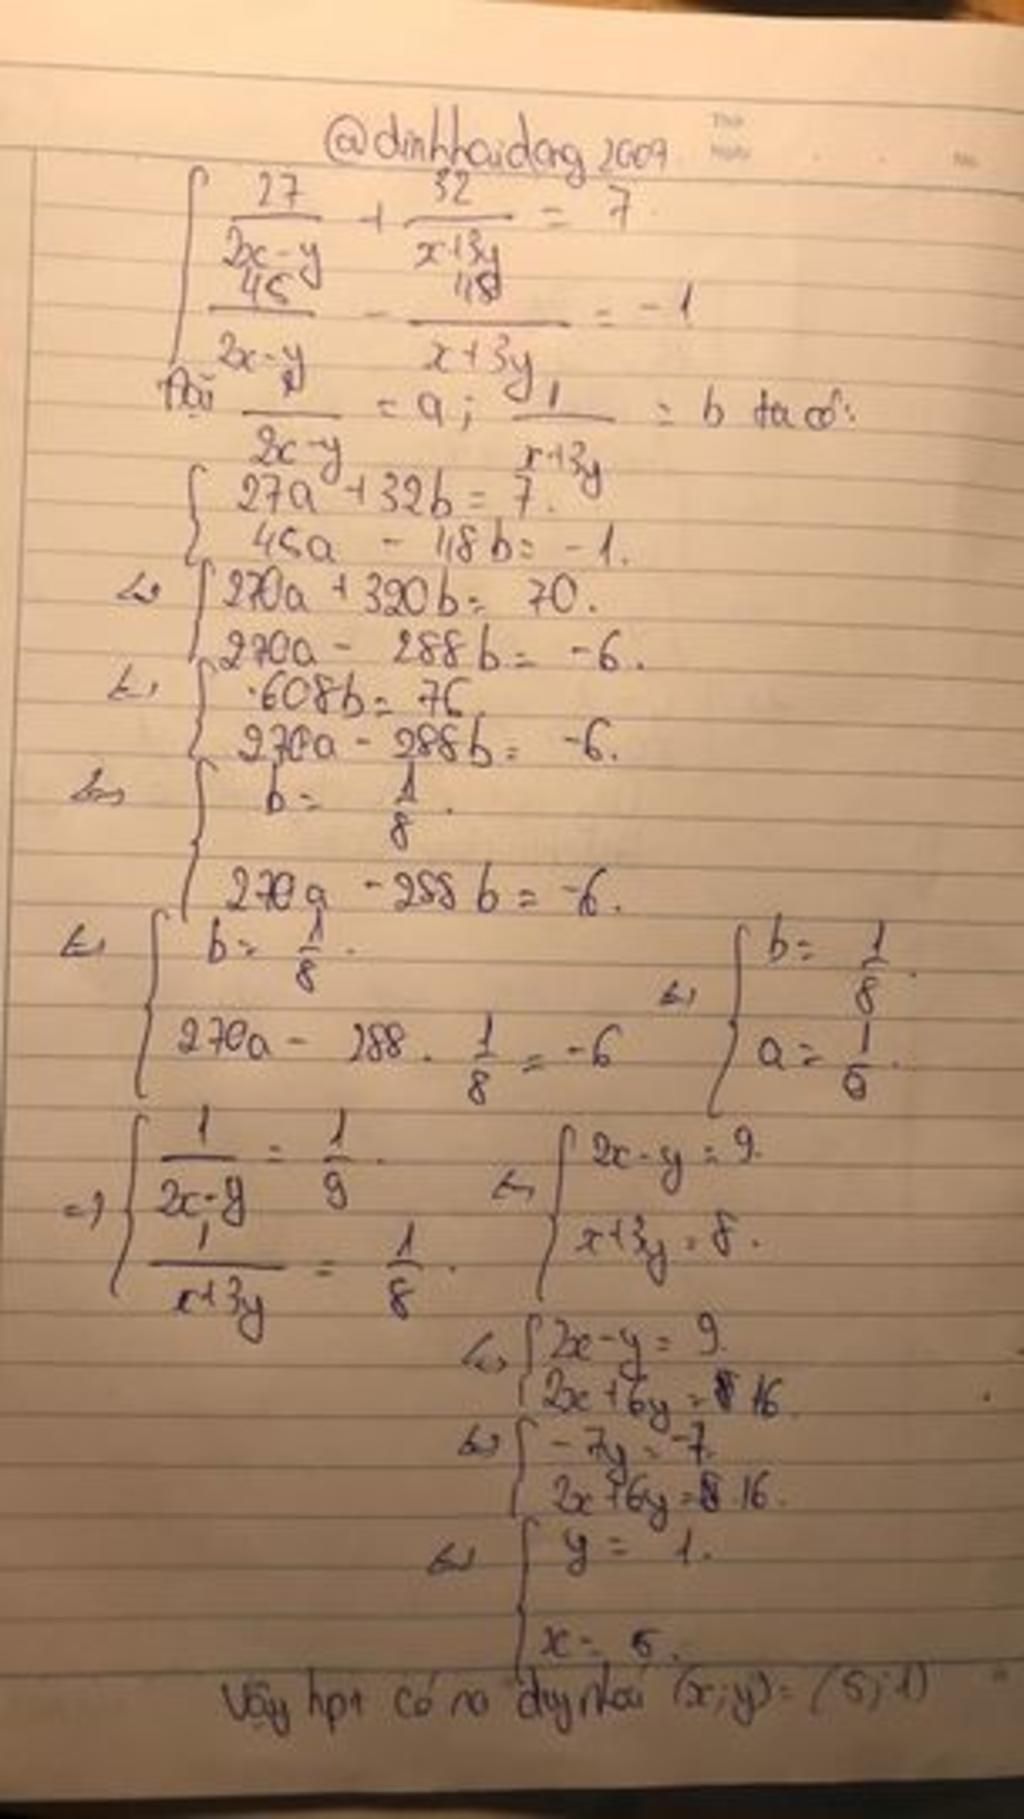 @dinhhaidang2009
Thứ
Ngày
No.
{ 27/(2x-y) + 32/(x+3y) = 7
45/(2x-y) - 48/(x+3y) = -1
Đặt 1/(2x-y) = a; 1/(x+3y) = b ta có:
{ 27a + 32b = 7.
45a - 48b = -1.
<=> { 270a + 320b = 70.
270a - 288b = -6.
<=> { 608b = 76
270a - 288b = -6.
<=> { b = 1/8.
270a - 288b = -6.
<=> { b = 1/8.
270a - 288 . 1/8 = -6
<=> { b = 1/8.
a = 1/9.
=> { 1/(2x-y) = 1/9.
1/(x+3y) = 1/8.
<=> { 2x-y = 9.
x+3y = 8.
<=> { 2x-y = 9.
2x+6y = 16.
<=> { -7y = -7.
2x+6y = 16.
<=> { y = 1.
x = 5.
Vậy hpt có no duy nhất (x;y) = (5;1)